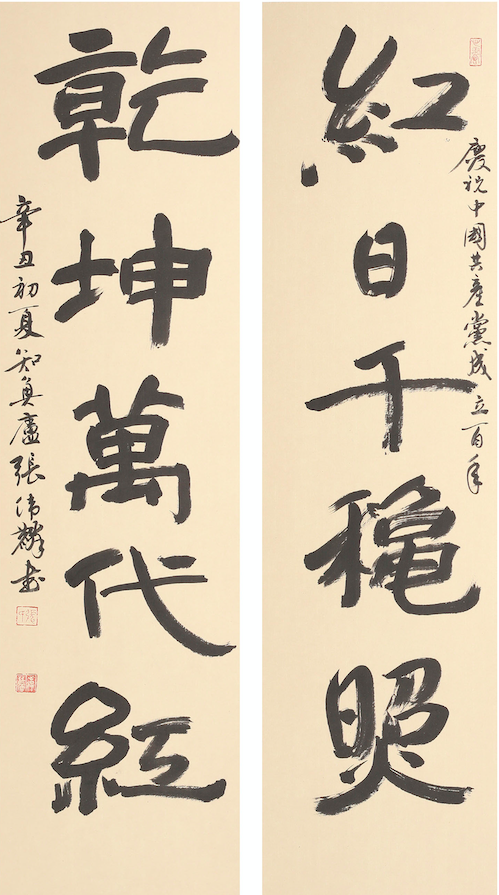 慶祝中國共產黨成立百年
紅日千穐照
乾坤萬代紅
辛丑初夏知廬張麟書